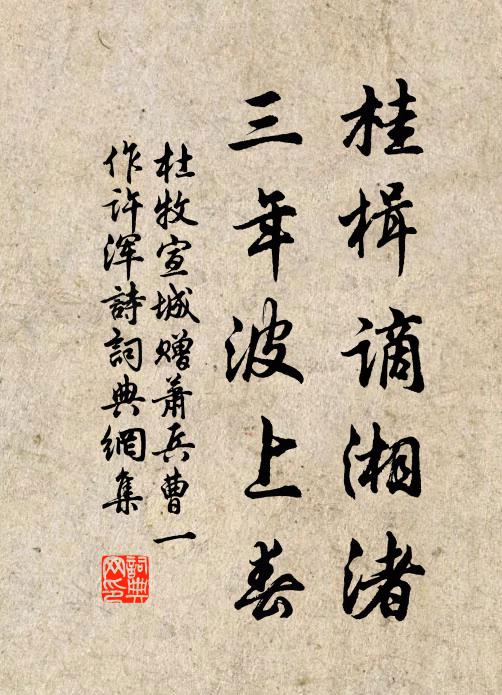 桂楫谪湘渚
三年波上春
杜牧宣城赠萧兵曹一
作许浑詩詞典網集
詞典網印